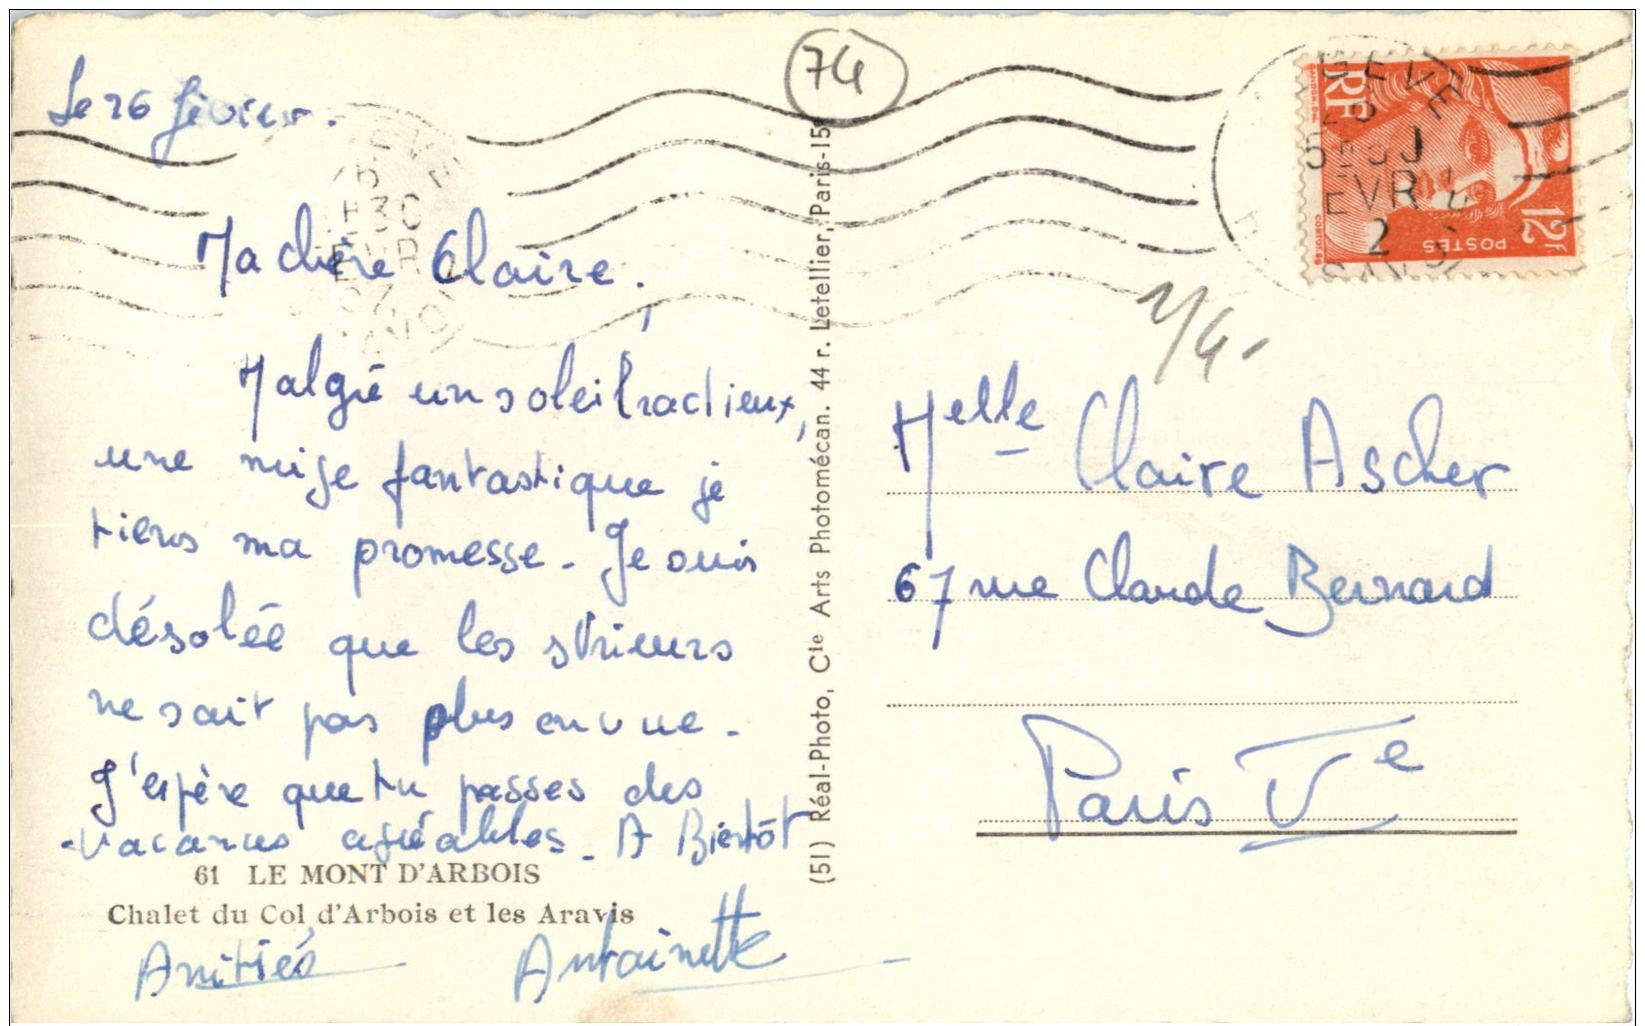 Le 26 février.
74
RF
12F
POSTES
Ma chère Claire,
Malgré un soleil radieux,
une neige fantastique je
tiens ma promesse. Je suis
désolée que les
ne soit pas plus en vue.
J'espère que tu passes des
vacances agréables. A Bientôt
61 LE MONT D'ARBOIS
Chalet du Col d'Arbois et les Aravis
Amitiés Antoinette
(51) Réal-Photo, Cte Arts Photomécan. 44 r. Letellier, Paris-15e
Melle Claire Ascher
67 rue Claude Bernard
Paris Ve